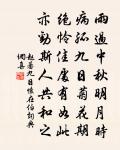 雨過中秋明月時
病孤九日菊花期
絶憐佳處有如此
亦勤斯人共和之
趙蕃九日懷在伯詞典
網喜